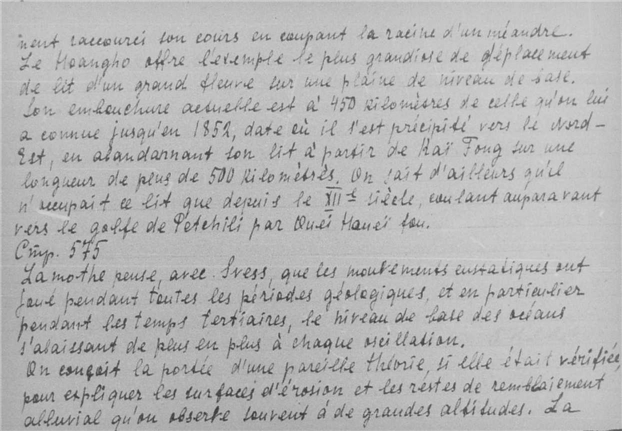 ment raccourci son cours en coupant la racine d'un méandre.
Le Hoangho offre l'exemple le plus grandiose de déplacement
de lit d'un grand fleuve sur une plaine de niveau de base.
Son embouchure actuelle est à 450 kilomètres de celle qu'on lui
a connue jusqu'en 1852, date où il s'est précipité vers le Nord-
Est, en abandarnant son lit à partir de Kaï Fong sur une
longueur de plus de 500 kilomètrés. On sait d'ailleurs qu'el
n'occupait ce lit que depuis le XIIᵉ siècle, coulant auparavant
vers le golfe de Petchili par Oueï Houeï fou.
Стр. 575
Lamothe pense, avec Svess, que les mouvements eustatiques ont
joué pendant toutes les périodes géologiques, et en particulier
pendant les temps tertiaires, le niveau de base des océans
s'abaissant de plus en plus à chaque oscillation.
On conçoit la portée d'une pareille théorie, si elle était vérifiée,
pour expliquer les surfaces d'érosion et les restes de remblaiement
alluvial qu'on observe souvent à de grandes altitudes. La